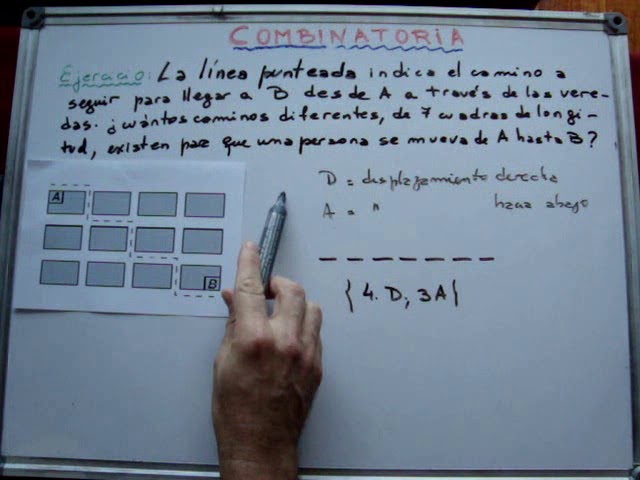 COMBINATORIA
Ejercicio: La línea punteada indica el camino a
seguir para llegar a B desde A a través de las vere-
das. ¿cuántos cominos diferentes, de 7 cuadras de longi-
tud, existen para que una persona se mueva de A hasta B?
D = desplazamiento derecha
A = " hacia abajo
A
B
{4.D, 3A}